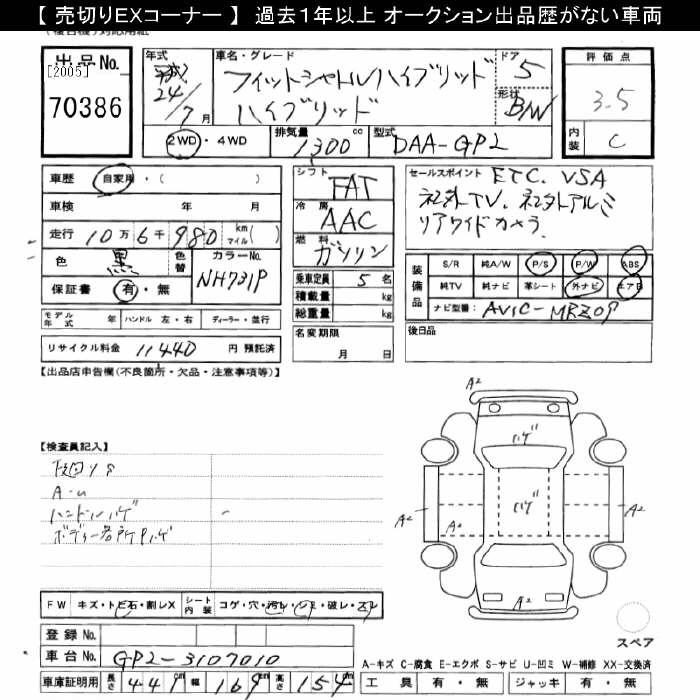 【 売切りEXコーナー 】 過去1年以上 オークション出品歴がない車両
出品No.
[2005]
70386
年式
平成
24/7月
車名・グレード
フィットシャトルハイブリッド
ハイブリッド
ドア
5
形状
BW
2WD・4WD
排気量
1300 cc
型式
DAA-GP2
評価点
3.5
内装
C
車歴 自家用・( )
車検 年 月
走行 10万 6千 980 km マイル( )
色 黒 色替 カラーNo. NH731P
保証書 有・無
シフト FAT
冷房 AAC
燃料 ガソリン
乗車定員 5 名
積載量 kg
総重量 kg
名変期限
月 日
セールスポイント ETC. VSA
社外TV. 社外アルミ
リアワイドカメラ
装備品
S/R 純A/W P/S P/W ABS
純TV 純ナビ 革シート 外ナビ エアB
ナビ型番: AVIC-MRZ09
後日品
モデル年式 年 ハンドル 左・右 ディーラー・並行
リサイクル料金 11440 円 預託済
【出品店申告欄(不良箇所・欠品・注意事項等)】
【検査員記入】
A-U
ハンドルハゲ
ボディー各所Pハゲ
A2
ハゲ
A2
ハゲ
A2
A2
FW キズ・トビ石・割レX シート内装 コゲ・穴・汚レ・シミ・破レ・スレ
登録No.
車台No. GP2-3107010
車庫証明用 長さ 441 幅 169 高さ 154
スペア
A-キズ C-腐食 E-エクボ S-サビ U-凹ミ W-補修 XX-交換済
工具 有・無 ジャッキ 有・無